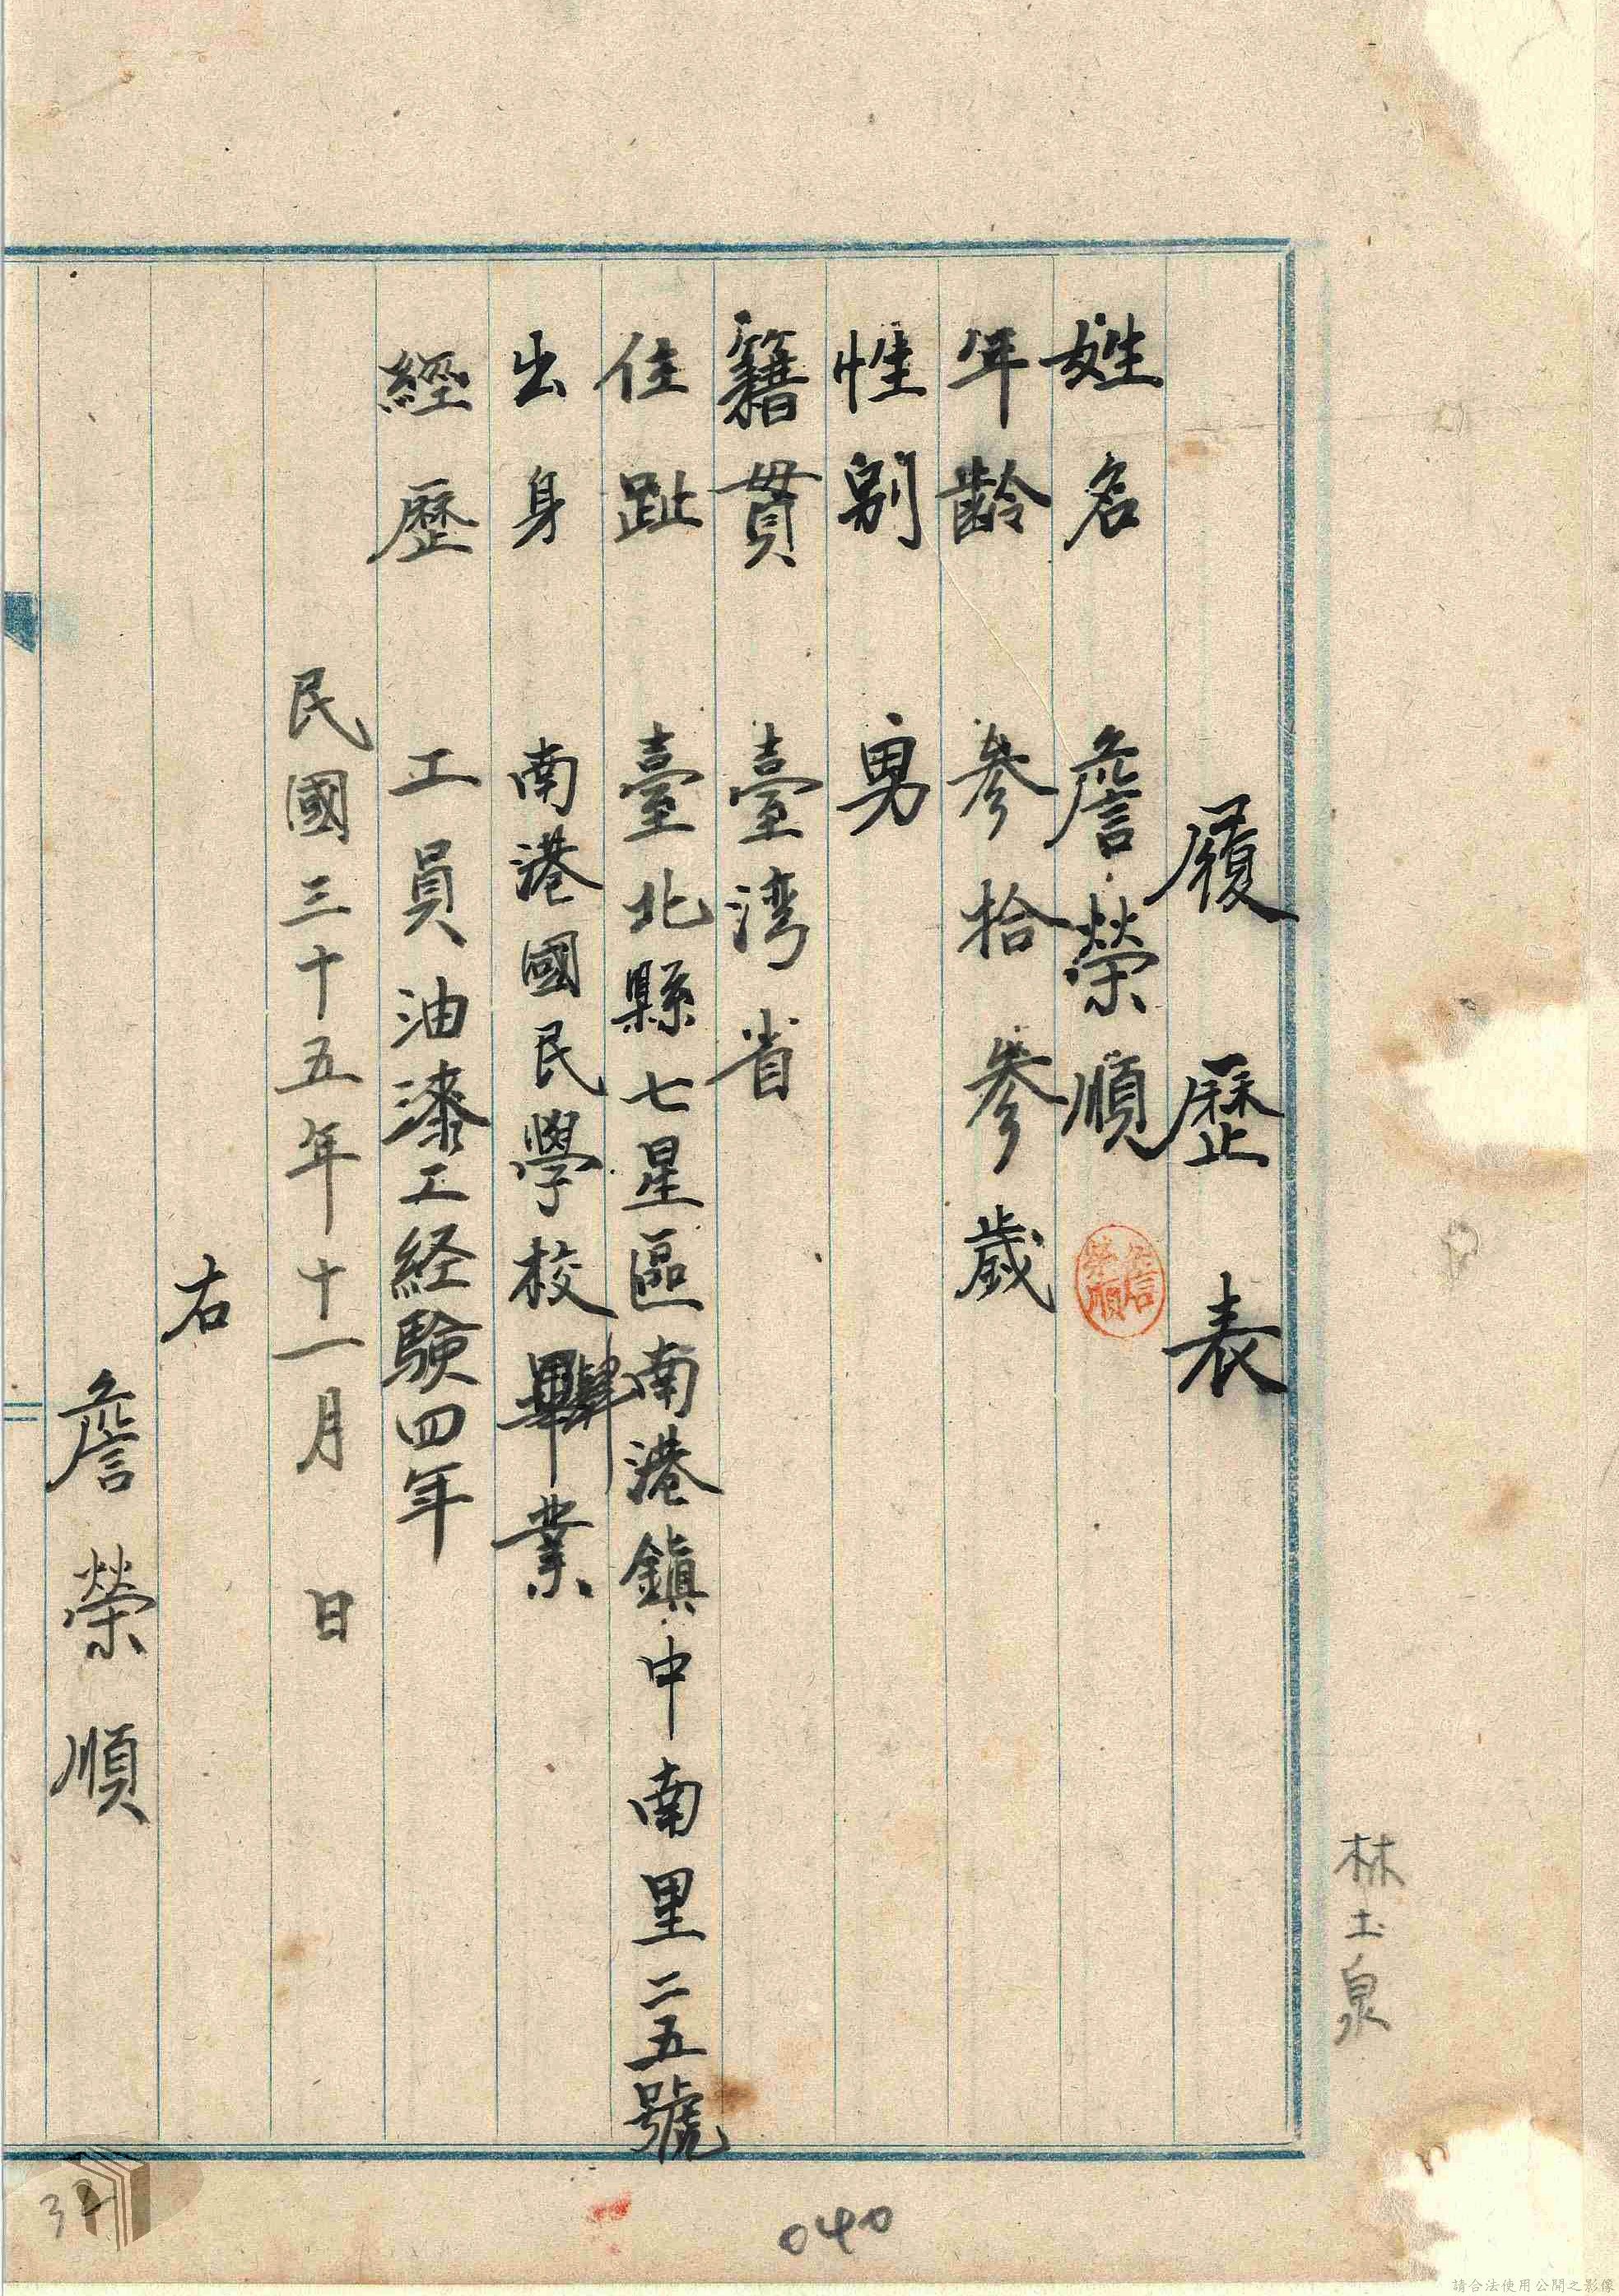 履歷表
姓名 詹榮順
詹榮順
年齡 參拾參歲
性別 男
籍貫 臺湾省
住趾 臺北縣七星區南港鎮中南里二五號
出身 南港國民學校畢業
經歷 工員油漆工経験四年
民國三十五年十一月 日
右
詹榮順
林土泉
040
請合法使用公開之影像